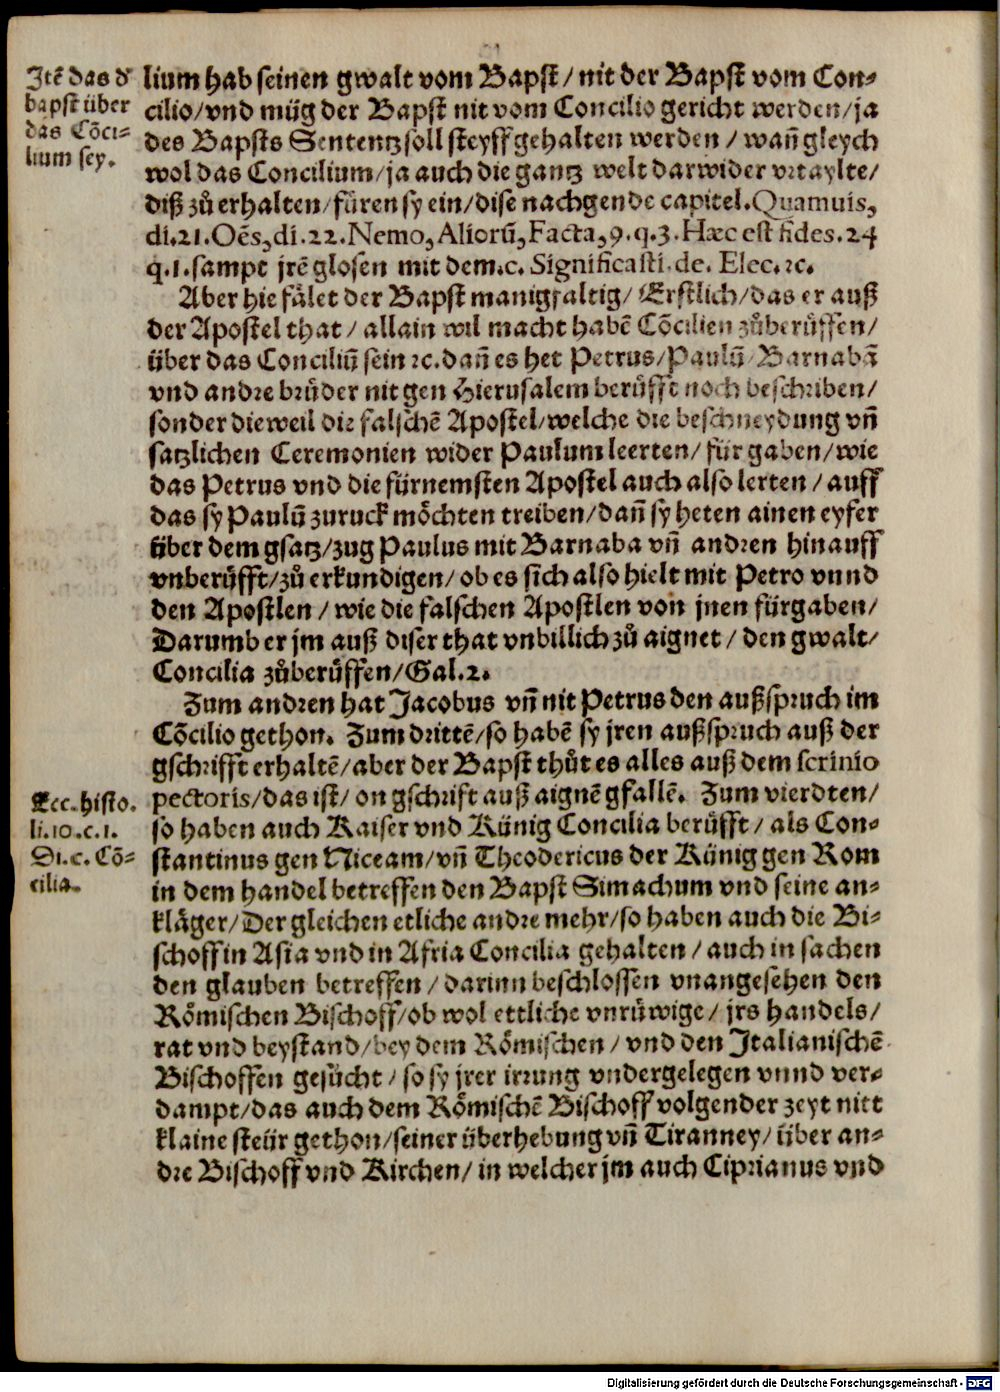 Itē das d'
bapst über
das Cōci-
lium sey.
lium hab seinen gwalt vom Bapst / nit der Bapst vom Con-
cilio / vnd müg der Bapst nit vom Concilio gericht werden / ja
des Bapsts Sententz soll steyff gehalten werden / wañ gleych
wol das Concilium / ja auch die gantz welt darwider vrtaylte /
diß zů erhalten / füren sy ein / dise nachgende capitel. Quamuis,
di. 21. Oēs, di. 22. Nemo, Aliorū, Facta, 9. q. 3. Hæc est fides. 24
q. 1. sampt jrē glosen mit dem. c. Significasti. de. Elec. ꝛc.
Aber hie fälet der Bapst manigfaltig / Erstlich / das er auß
der Apostel that / allain wil macht habē Cōcilien zůberůffen /
über das Conciliū sein ꝛc. dañ es het Petrus / Paulū / Barnabā
vnd andre brüder nit gen Hierusalem berůfft noch beschriben /
sonder dieweil die falschē Apostel / welche die beschneydung vñ
satzlichen Ceremonien wider Paulum leerten / für gaben / wie
das Petrus vnd die fürnemsten Apostel auch also lerten / auff
das sy Paulū zuruck möchten treiben / dañ sy heten ainen eyfer
über dem gsatz / zug Paulus mit Barnaba vñ andren hinauff
vnberůfft / zů erkundigen / ob es sich also hielt mit Petro vnnd
den Apostlen / wie die falschen Apostlen von jnen fürgaben /
Darumb er jm auß diser that vnbillich zů aignet / den gwalt /
Concilia zůberůffen / Gal. 2.
Zum andren hat Jacobus vñ nit Petrus den außspruch im
Cōcilio gethon. Zum drittē / so habē sy jren außspruch auß der
gschrifft erhaltē / aber der Bapst thůt es alles auß dem scrinio
pectoris / das ist / on gschrift auß aignē gfallē. Zum vierdten /
Ecc. histo.
li. 10. c. 1.
Di. c. Cō-
cilia.
so haben auch Kaiser vnd Künig Concilia berůfft / als Con-
stantinus gen Niceam / vñ Theodericus der Künig gen Rom
in dem handel betreffen den Bapst Simachum vnd seine an-
kläger / Der gleichen etliche andre mehr / so haben auch die Bi-
schoff in Asia vnd in Afria Concilia gehalten / auch in sachen
den glauben betreffen / darinn beschlossen vnangesehen den
Römischen Bischoff / ob wol ettliche vnrüwige / jrs handels /
rat vnd beystand / bey dem Römischen / vnd den Italianischē
Bischoffen gesücht / so sy jrer irrung vndergelegen vnnd ver-
dampt / das auch dem Römischē Bischoff volgender zeyt nitt
klaine steür gethon / seiner überhebung vñ Tiranney / über an-
dre Bischoff vnd Kirchen / in welcher jm auch Ciprianus vnd
Digitalisierung gefördert durch die Deutsche Forschungsgemeinschaft - DFG